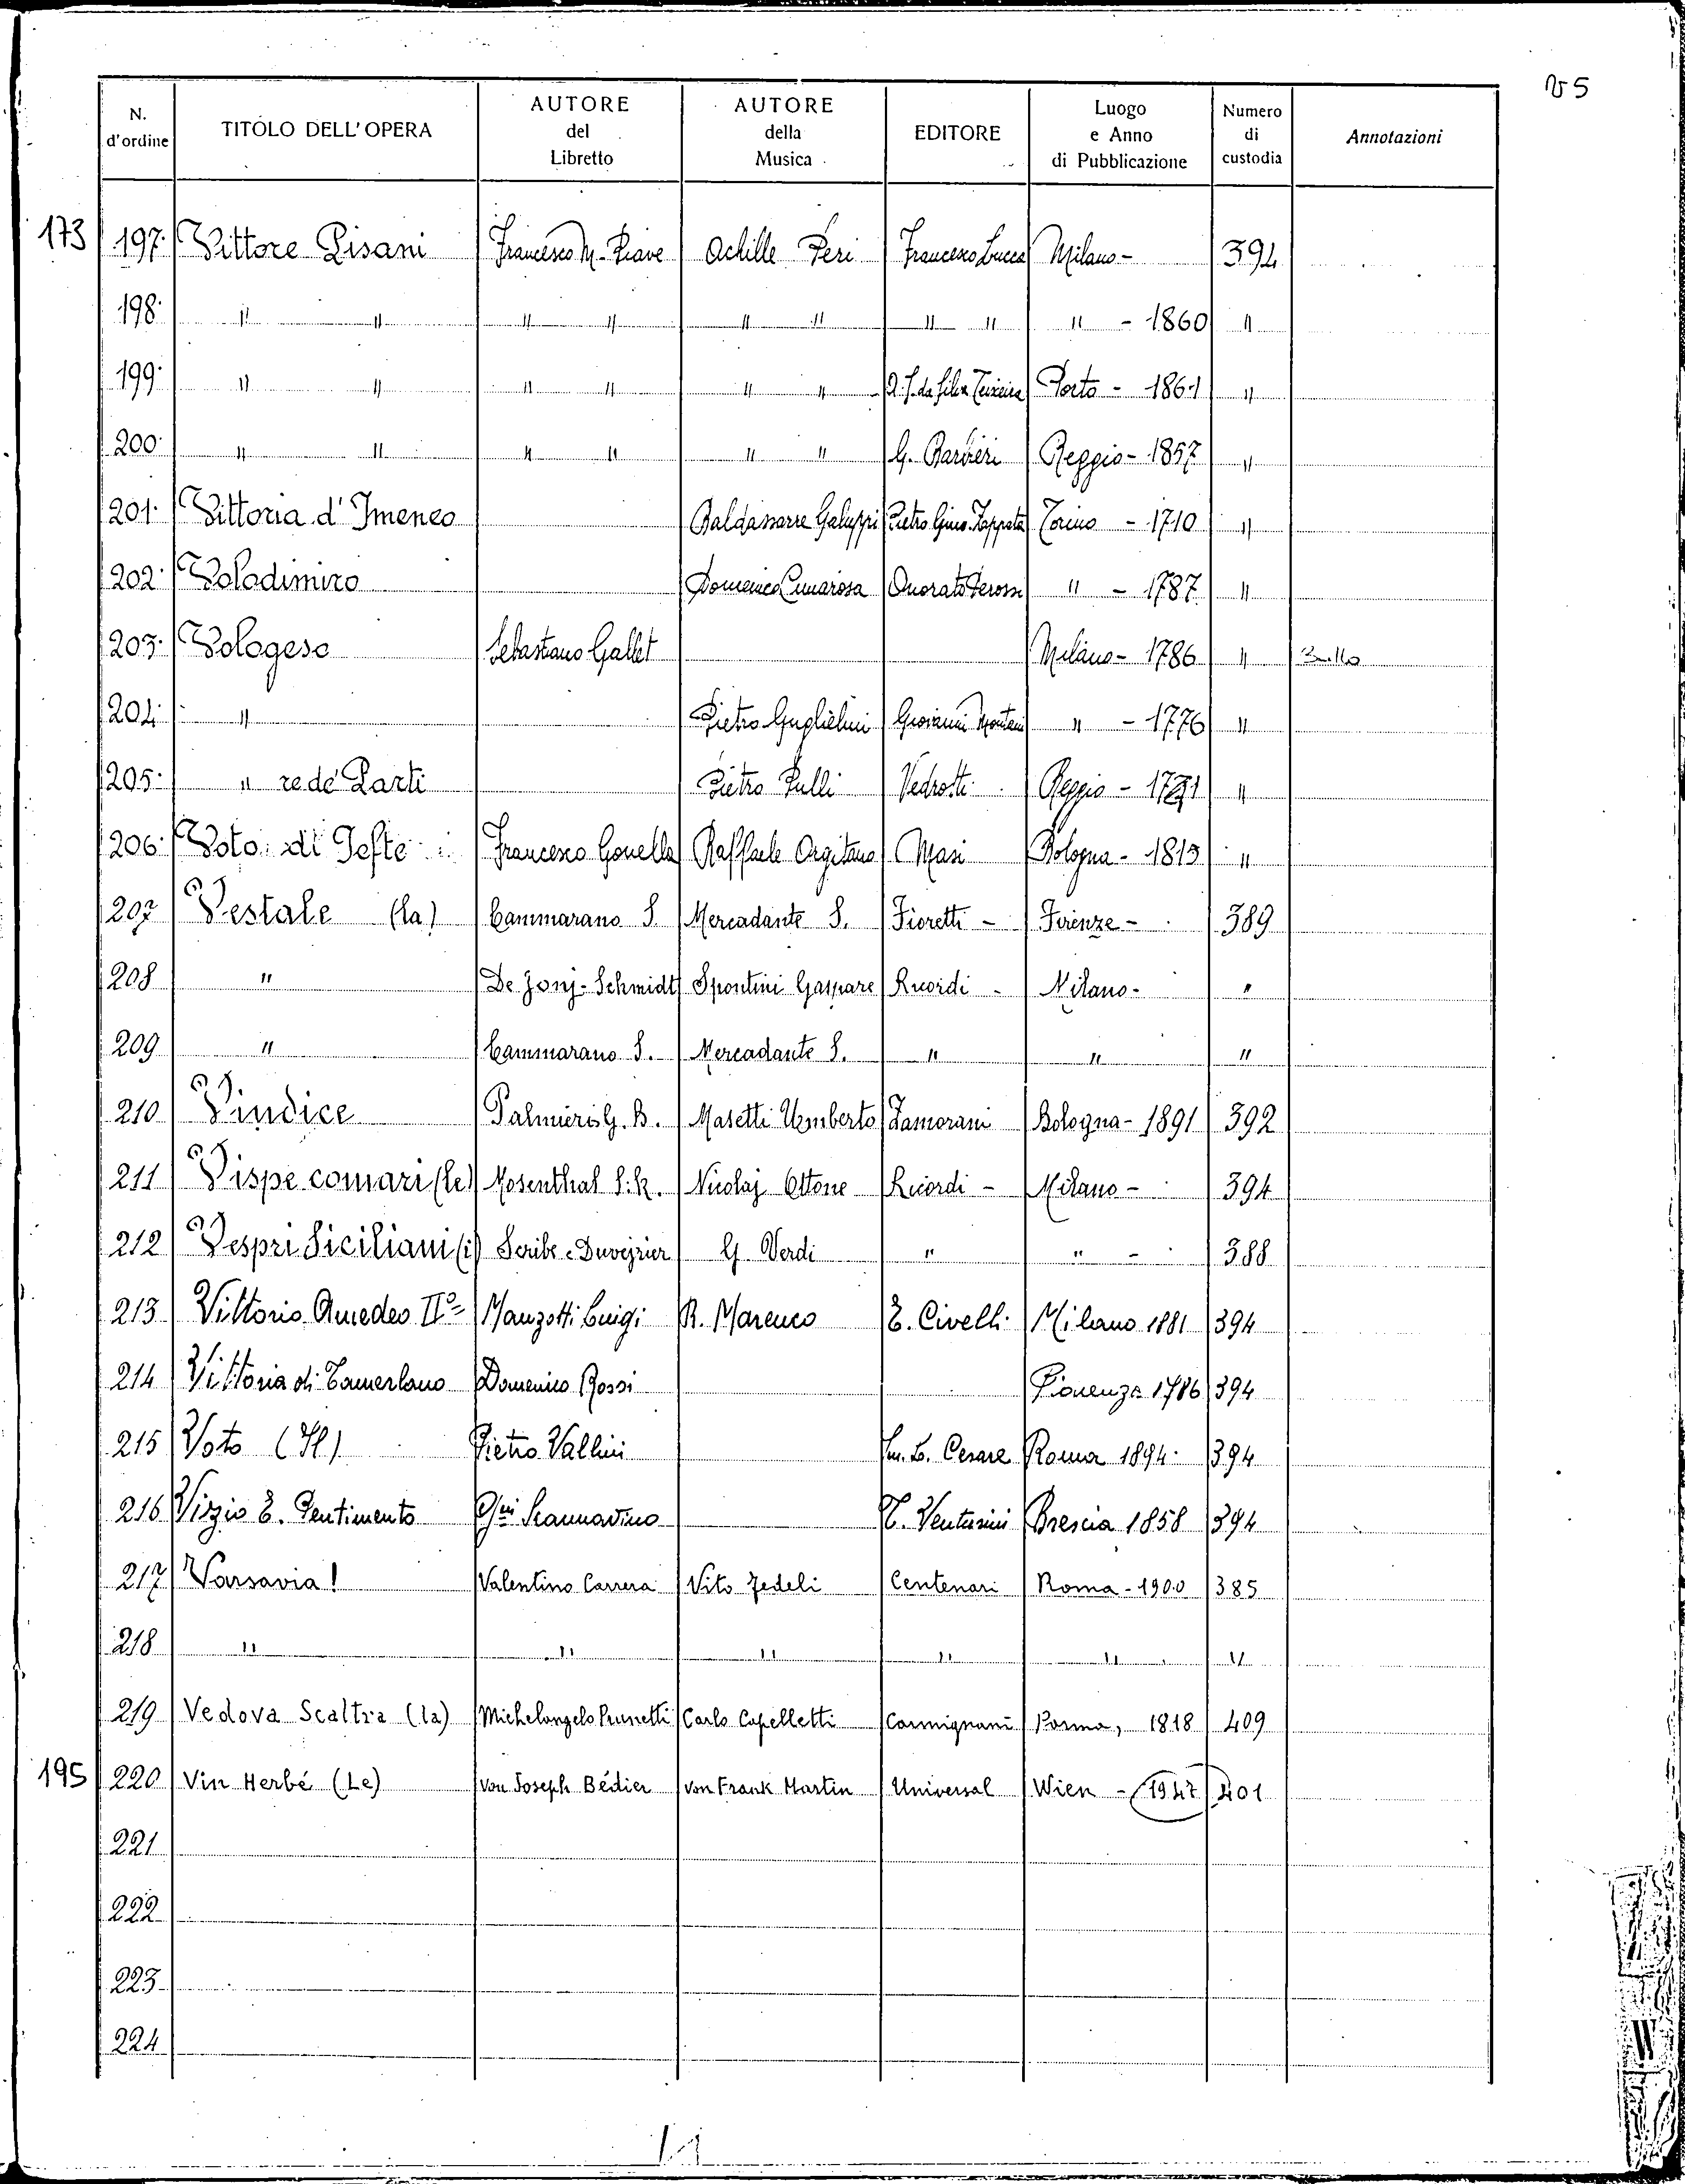 v5
N. d'ordine | TITOLO DELL'OPERA | AUTORE del Libretto | AUTORE della Musica | EDITORE | Luogo e Anno di Pubblicazione | Numero di custodia | Annotazioni
173 197. Vittore Pisani Francesco M. Piave Achille Peri Francesco Lucca Milano - 394
198. " " " " " " " " " - 1860 "
199. " " " " " " da Silva Teixeira Porto - 1861 "
200. " " " " " " G. Barbieri Reggio - 1857 "
201. Vittoria d'Imeneo Baldassarre Galuppi Pietro Gius. Zappata Torino - 1710 "
202. Volodimiro Domenico Cimarosa Onorato Derossi " - 1787 "
203. Vologeso Sebastiano Gallet Milano - 1786 " Ballo
204. " Pietro Guglielmi Giovanni Montani " - 1776 "
205. " re de' Parti Pietro Pulli Vedrotti Reggio - "
206. Voto di Jefte Francesco Gonella Raffaele Orgitano Masi Bologna - 1813 "
207 Vestale (la) Cammarano S. Mercadante S. Fioretti - Firenze - 389
208 " De Jouj - Schmidt Spontini Gaspare Ricordi - Milano - "
209 " Cammarano S. Mercadante S. " " "
210 Vindice Palmieri G. B. Masetti Umberto Zamorani Bologna - 1891 392
211 Vispe comari (le) Mosenthal S. h. Nicolaj Ottone Ricordi - Milano - 394
212 Vespri Siciliani (i) Scribe e Duvejrier G. Verdi " " - 388
213 Vittorio Amedeo II° Manzotti Luigi R. Marenco E. Civelli Milano 1881 394
214 Vittoria di Tamerlano Domenico Rossi Piacenza 1786 394
215 Voto (Il) Pietro Vallini Cesare Roma 1894 394
216 Vizio E. Pentimento Scannavino Venturini Brescia 1858 394
217 Varsavia! Valentino Carrera Vito Fedeli Centenari Roma - 1900 385
218 " " " " " "
219 Vedova Scaltra (la) Michelangelo Prunetti Carlo Capelletti Carmignani Parma, 1818 409
195 220 Vin Herbé (Le) von Joseph Bédier von Frank Martin Universal Wien - 1947 401
221
222
223
224